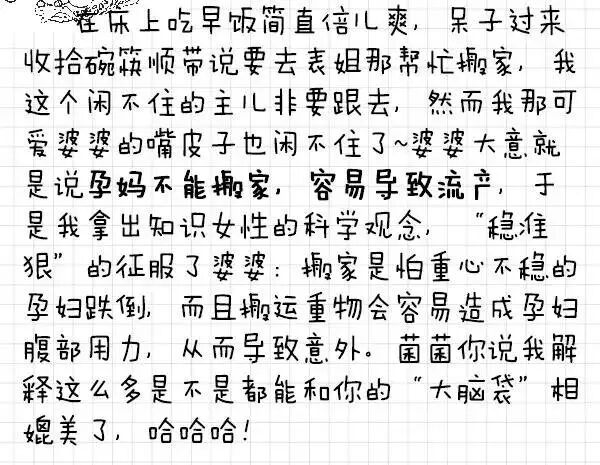 在床上吃早饭简直倍儿爽，呆子过来
收拾碗筷顺带说要去表姐那帮忙搬家，我
这个闲不住的主儿非要跟去，然而我那可
爱婆婆的嘴皮子也闲不住了~婆婆大意就
是说孕妈不能搬家，容易导致流产，于
是我拿出知识女性的科学观念，“稳准
狠”的征服了婆婆：搬家是怕重心不稳的
孕妇跌倒，而且搬运重物会容易造成孕妇
腹部用力，从而导致意外。菌菌你说我解
释这么多是不是都能和你的“大脑袋”相
媲美了，哈哈哈！